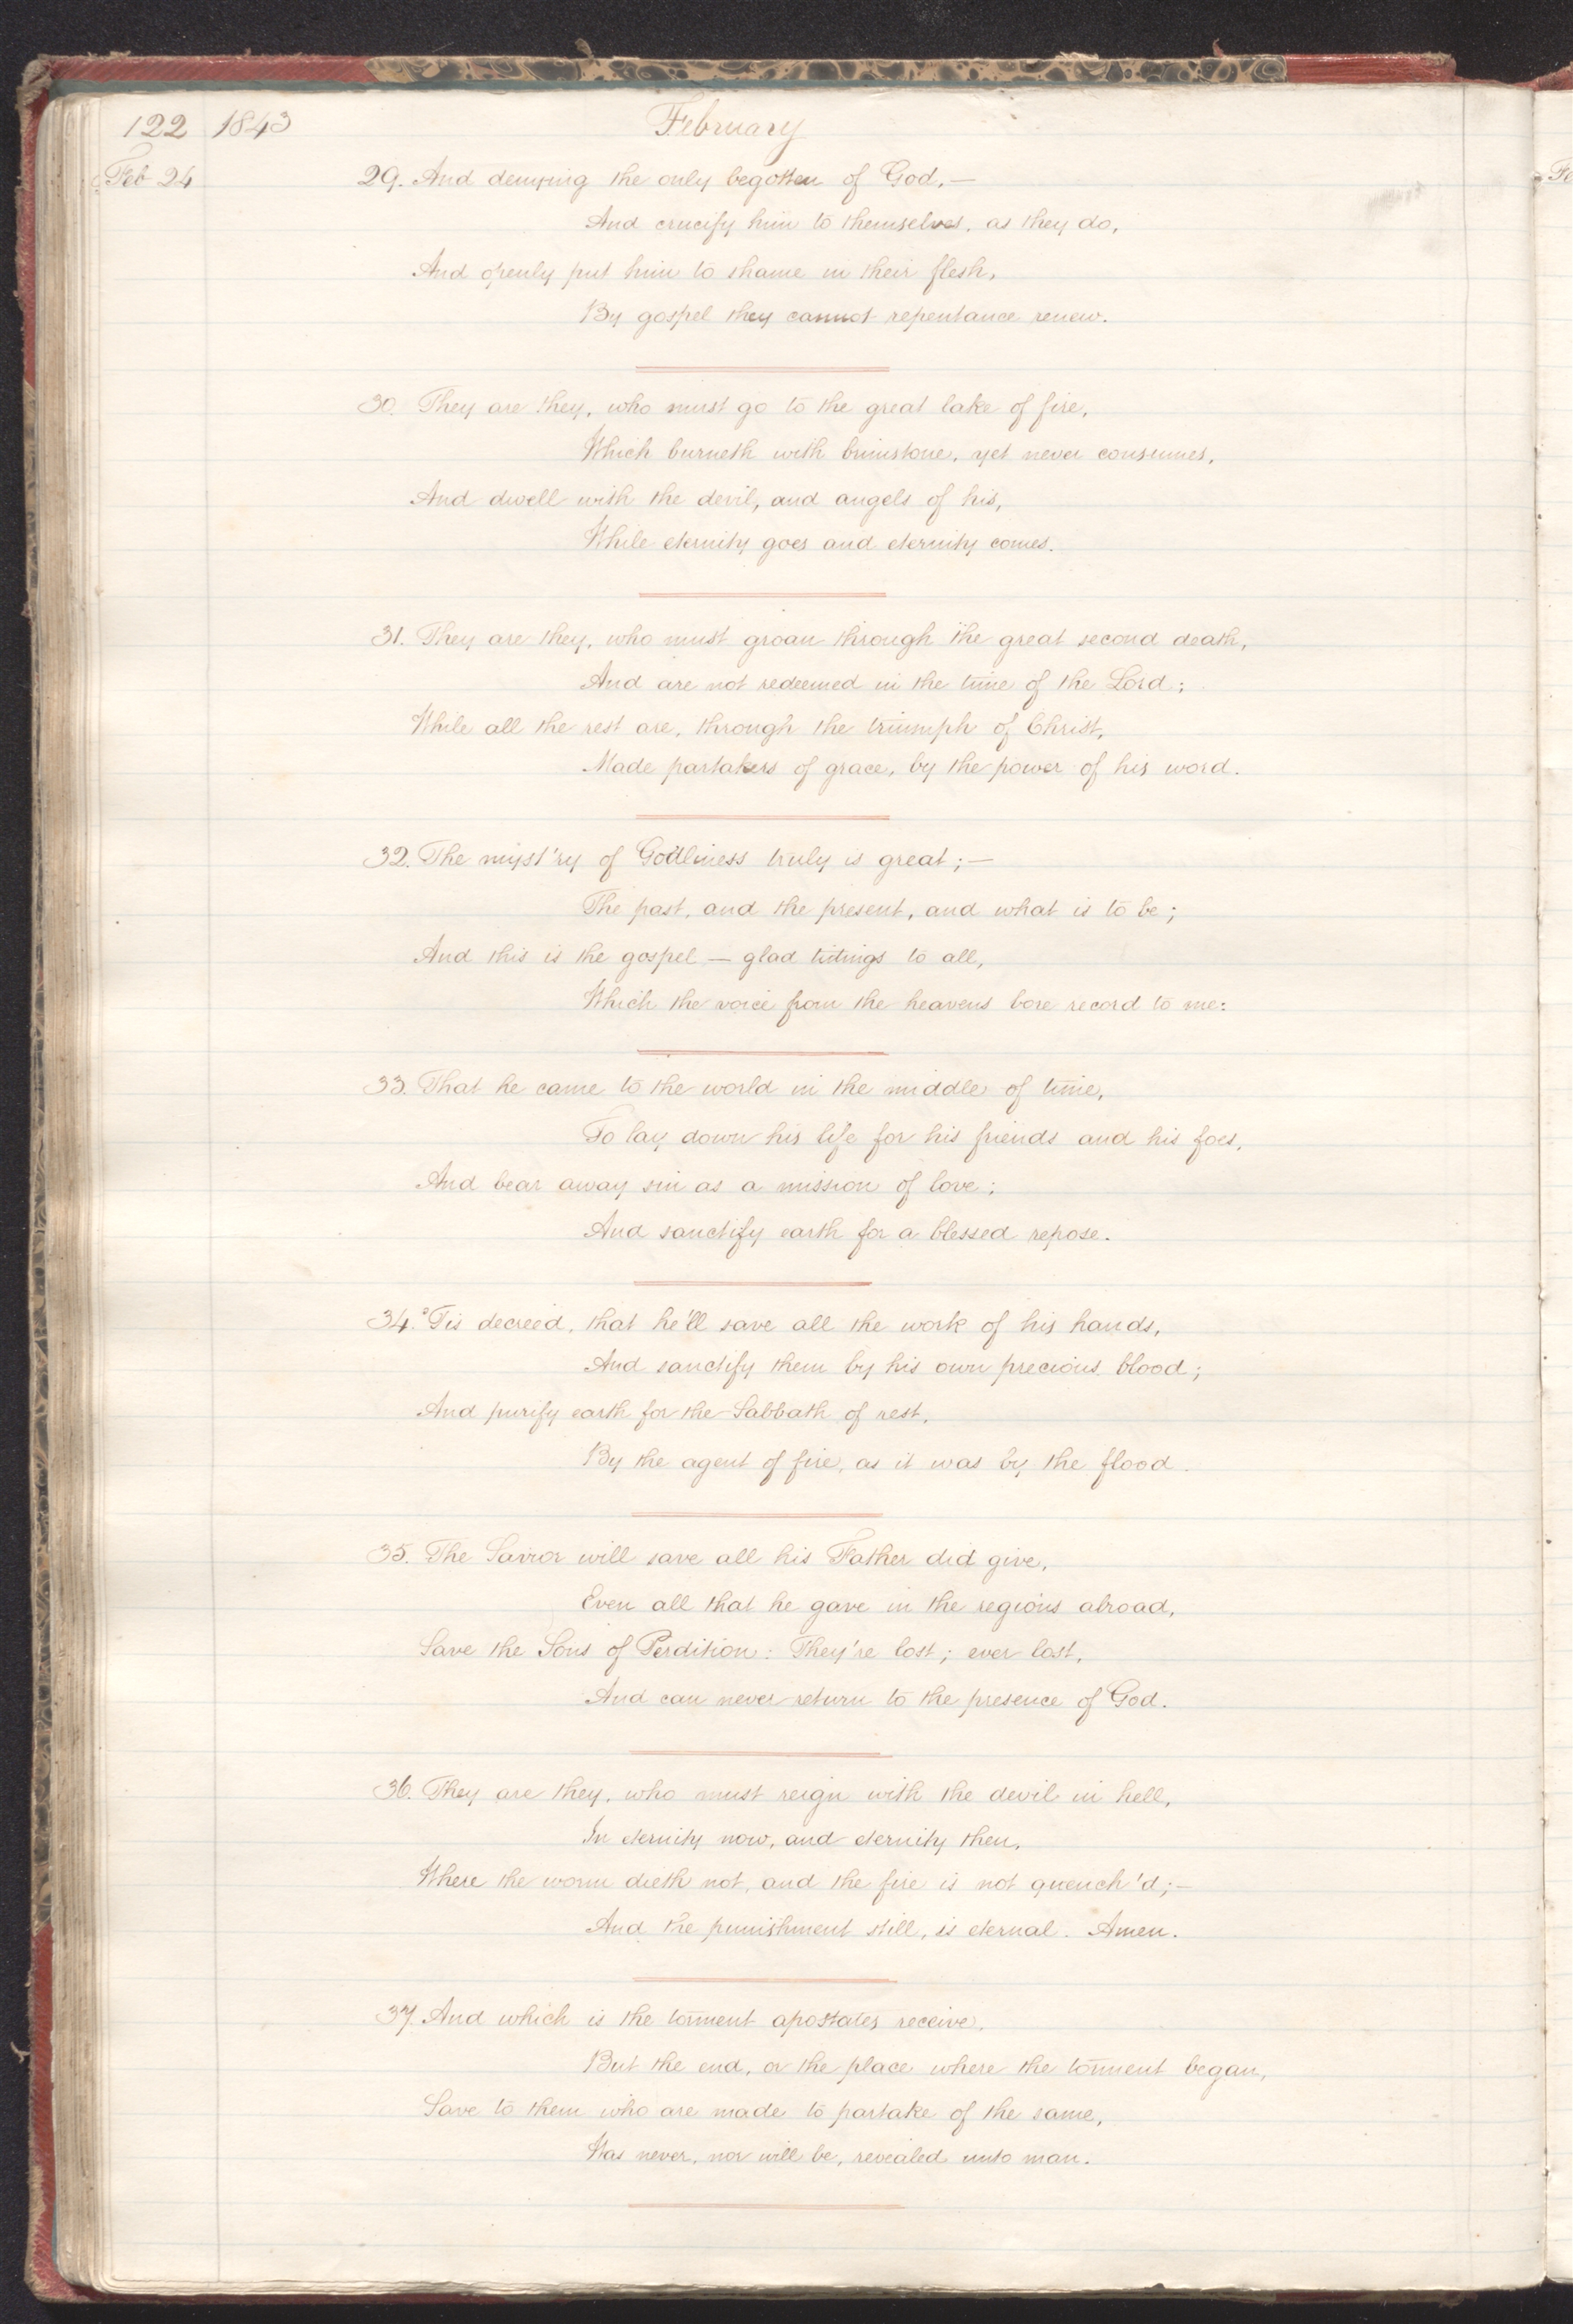 122 1843 February
Feb 24 29. And denying the only begotten of God,—
And crucify him to themselves, as they do,
And openly put him to shame in their flesh,
By gospel they cannot repentance renew.
30. They are they, who must go to the great lake of fire,
Which burneth with brimstone, yet never consumes,
And dwell with the devil, and angels of his,
While eternity goes and eternity comes.
31. They are they, who must groan through the great second death,
And are not redeemed in the time of the Lord;
While all the rest are, through the triumph of Christ,
Made partakers of grace, by the power of his word.
32. The myst'ry of Godliness truly is great;—
The past, and the present, and what is to be;
And this is the gospel — glad tidings to all,
Which the voice from the heavens bore record to me:
33. That he came to the world in the middle of time,
To lay down his life for his friends and his foes,
And bear away sin as a mission of love;
And sanctify earth for a blessed repose.
34. 'Tis decreed, that he'll save all the work of his hands,
And sanctify them by his own precious blood;
And purify earth for the Sabbath of rest,
By the agent of fire, as it was by the flood.
35. The Savior will save all his Father did give,
Even all that he gave in the regions abroad,
Save the Sons of Perdition: They're lost; ever lost,
And can never return to the presence of God.
36. They are they, who must reign with the devil in hell,
In eternity now, and eternity then,
Where the worm dieth not, and the fire is not quench'd;—
And the punishment still, is eternal. Amen.
37. And which is the torment apostates receive,
But the end, or the place where the torment began,
Save to them who are made to partake of the same,
Was never, nor will be, revealed unto man.